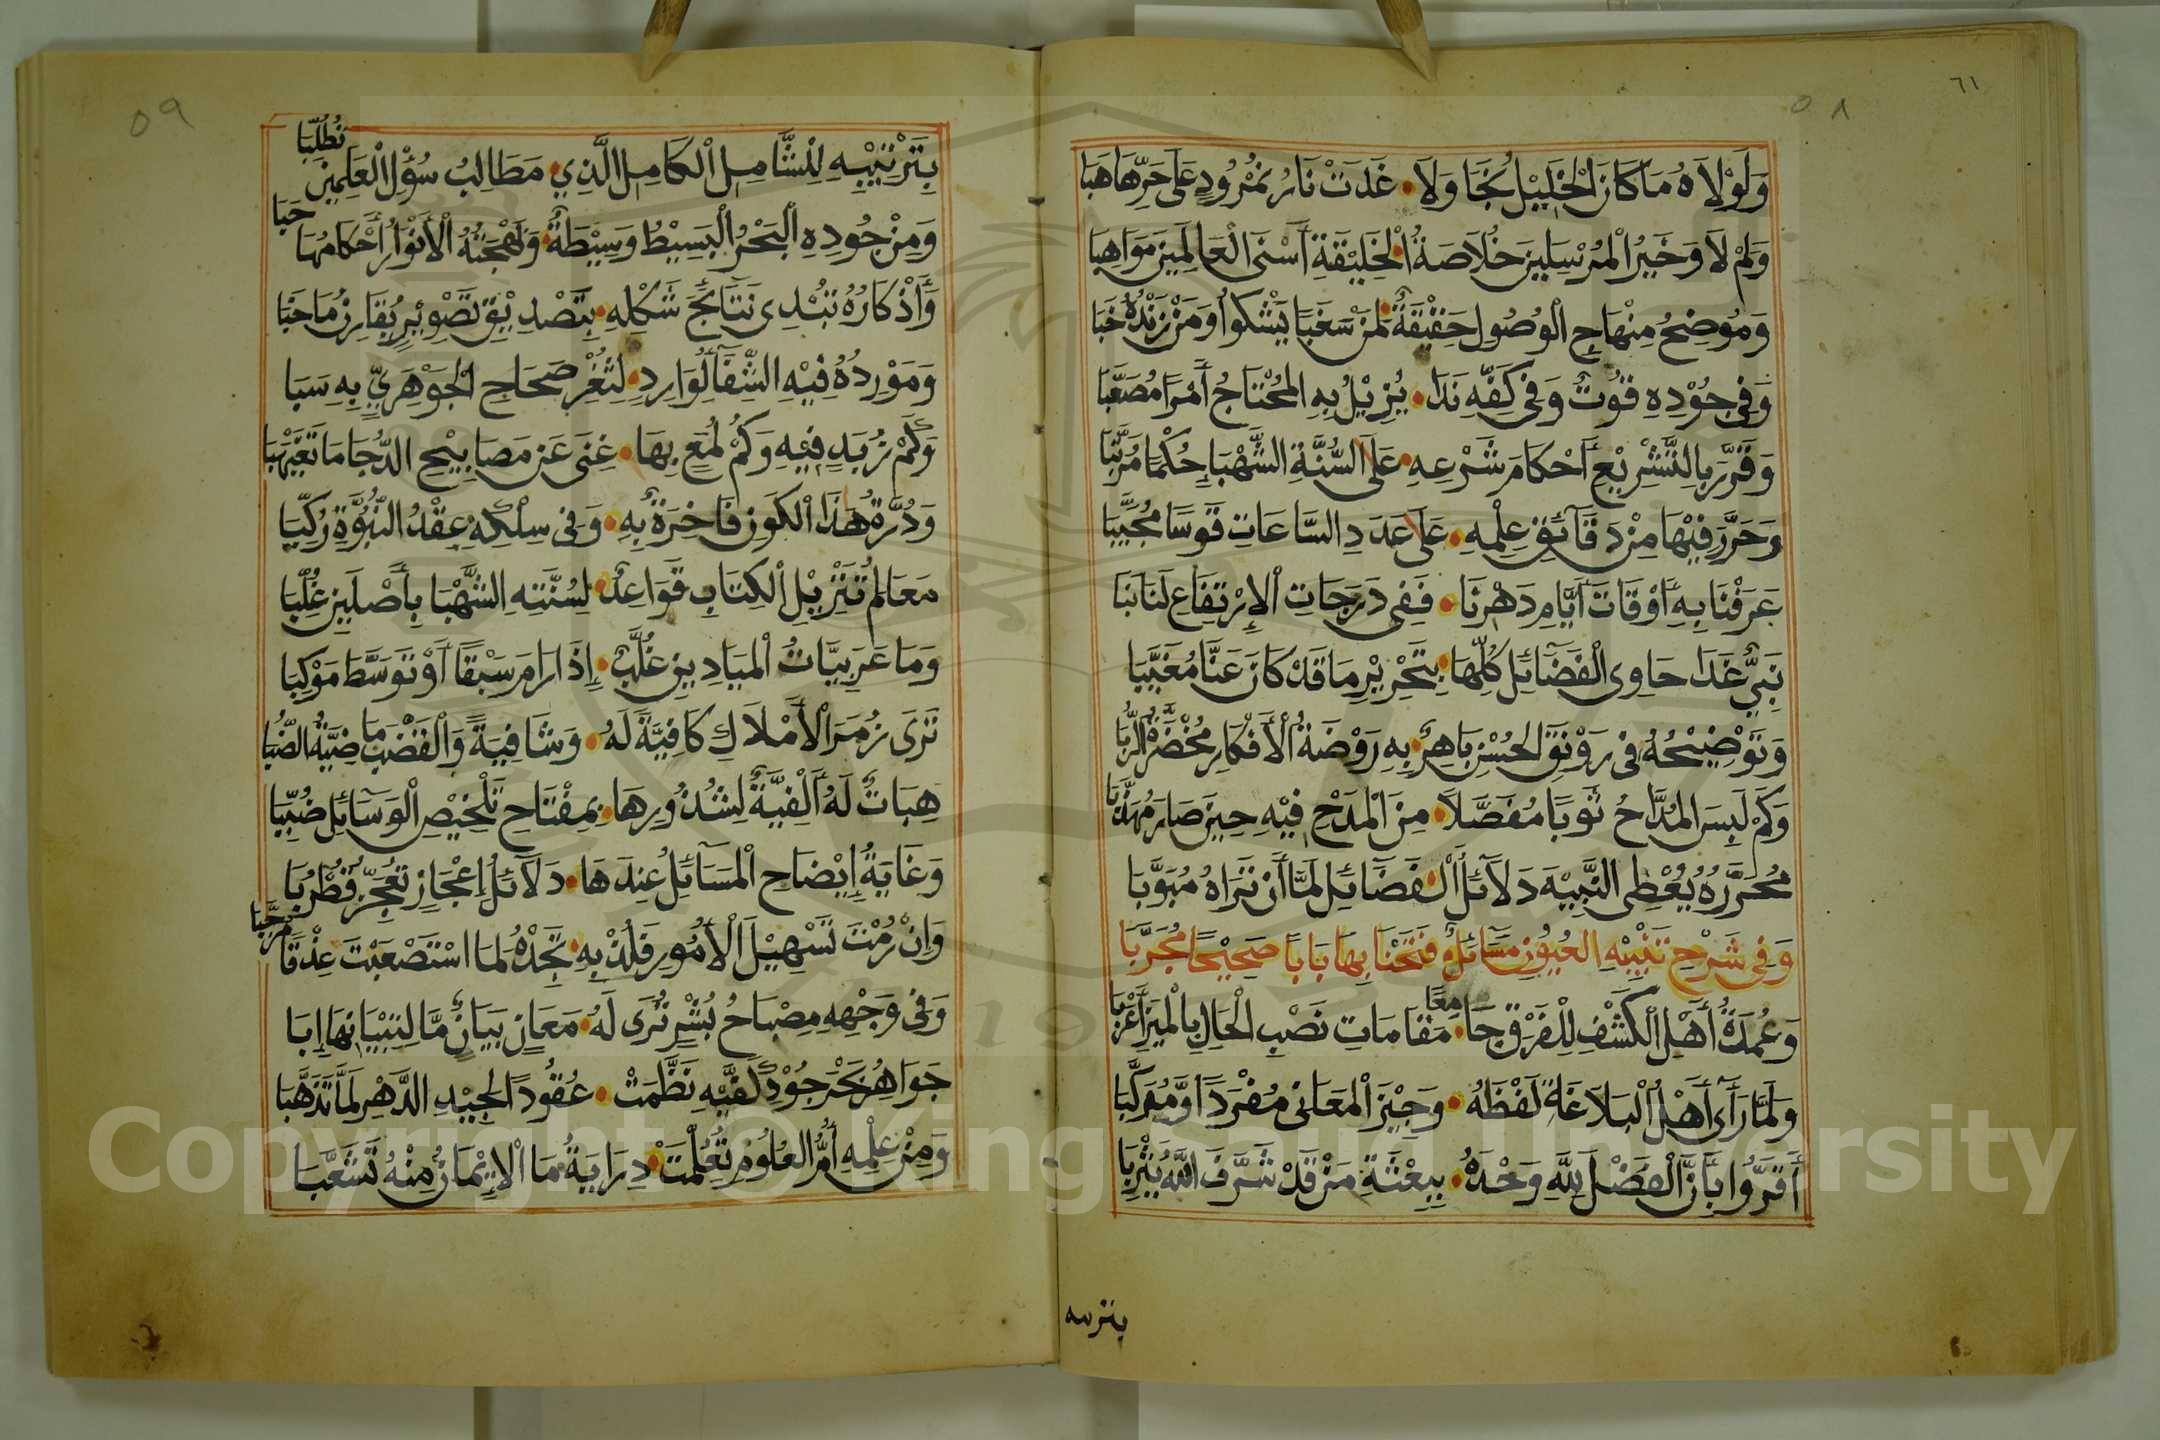 ٦١
٥٨
وَلَوْلَاهُ مَا كَانَ الْخَلِيْلُ نَجَا وَلَا • غَدَتْ نَارُ نُمْرُودٍ عَلَى حَرِّهَا هَبَا
وَلِمْ لَا وَخَيْرُ الْمُرْسَلِيْنَ خُلَاصَةُ • الْخَلِيْقَةِ أَسْنَى الْعَالَمِيْنَ مَوَاهِبَا
وَمُوضِحُ مِنْهَاجِ الْوُصُولِ حَقِيْقَةً • لِمَنْ سَغَبًا يَشْكُو أَوْ مَنْ زَنْدُهُ خَبَا
وَفِي جُوْدِهِ قُوْتٌ وَفِي كَفِّهِ نَدَا • يُزِيْلُ بِهِ الْمُحْتَاجُ أَمْرًا مُصَعَّبَا
وَقَرَّرَ بِالتَّشْرِيْعِ أَحْكَامَ شَرْعِهِ • عَلَى السُّنَّةِ الشَّهْبَاءِ حُكْمًا مُرَتَّبَا
وَحَرَّرَ فِيْهَا مِنْ دَقَائِقِ عِلْمِهِ • عَلَى عَدَدِ السَّاعَاتِ قَوْسًا مُجَيَّبَا
عَرَفْنَا بِهِ أَوْقَاتَ أَيَّامِ دَهْرِنَا • فَفِي دَرَجَاتِ الْإِرْتِفَاعِ لَنَا نَبَا
نَبِيٌّ غَدَا حَاوِي الْفَضَائِلِ كُلِّهَا • بِتَحْرِيْرِ مَا قَدْ كَانَ عَنَّا مُغَيَّبَا
وَتَوْضِيْحُهُ فِي رَوْنَقِ الْحُسْنِ بَاهِرٌ • بِهِ رَوْضَةُ الْأَفْكَارِ مُخْضَرَّةُ الرُّبَا
وَكَمْ لَبِسَ الْمُدَّاحُ ثَوْبًا مُفَصَّلًا • مِنَ الْمَدْحِ فِيْهِ حِيْنَ صَارَ مُهَذَّبَا
مُحَرَّرُهُ يُعْطِي النَّبِيْهَ دَلَائِلَ • الْفَضَائِلِ لَمَّا أَنْ تَرَاهُ مُبَوَّبَا
وَفِي شَرْحِ تَنْبِيْهِ الْعُيُوْنِ مَسَائِلٌ • فَتَحْنَا بِهَا بَابًا صَحِيْحًا مُجَرَّبَا
وَعُمْدَةُ أَهْلِ الْكَشْفِ لِلْفَرْقِ حَا • مَقَامَاتِ نَصْبِ الْحَالِ بِالْمَيْزِ أَعْرَبَا
مِعًا
وَلَمَّا رَأَى أَهْلُ الْبَلَاغَةِ لَفْظَهُ • وَجِيْزَ الْمَعَانِي مُفْرَدًا وَمُرَكَّبَا
أَقَرُّوا بِأَنَّ الْفَضْلَ لِلَّهِ وَحْدَهُ • بِبِعْثَةِ مَنْ قَدْ شَرَّفَ اللَّهُ يَثْرِبَا
بترتيبه
٥٩
بِتَرْتِيْبِهِ لِلشَّامِلِ الْكَامِلِ الَّذِي • مَطَالِبُ سُؤْلِ الْعَالَمِيْنَ تُطُلِّبَا
وَمِنْ جُودِهِ الْبَحْرُ الْبَسِيْطُ وَسِيْطَةٌ • وَلَهْجَتُهُ الْأَنْوَارُ أَحْكَامُهَا حَبَا
وَأَذْكَارُهُ تُبْدِي نَتَائِجَ شَكْلِهِ • بِتَصْدِيْقِ تَصْوِيْرٍ يُقَارِنُ مَا خَبَا
وَمَوْرِدُهُ فِيْهِ الشِّفَا لِوَارِدٍ • لِثُغْرِ صَحَاحِ الْجَوْهَرِيِّ بِهِ سَبَا
وَكَمْ زُبَدٍ فِيْهِ وَكَمْ لُمَعٍ بِهَا • غِنًى عَنْ مَصَابِيْحِ الدُّجَا مَا تَغَيْهَبَا
وَدُرَّةُ هٰذَا الْكَوْنِ فَاخِرَةٌ بِهِ • وَفِي سِلْكِهِ عِقْدُ النُّبُوَّةِ رُكِّبَا
مَعَالِمُ تَنْزِيْلِ الْكِتَابِ قَوَاعِدٌ • لِسُنَّتِهِ الشَّهْبَا بِأَصْلَيْنِ غُلِّبَا
وَمَا عَرَبِيَّاتُ الْمَيَادِيْنِ غُلَّبٌ • إِذَا رَامَ سَبْقًا أَوْ تَوَسَّطَ مَوْكِبَا
تَرَى زُمَرَ الْأَمْلَاكِ كَافِيَةً لَهُ • وَشَافِيَةً وَالْقُضْبُ مَاضِيَةُ الضُّبَا
هِبَاتٌ لَهُ أَلْفِيَّةٌ لِشُذُوْرِهَا • بِمِفْتَاحِ تَلْخِيْصِ الْوَسَائِلِ ضُبِّبَا
وَغَايَةُ إِيْضَاحِ الْمَسَائِلِ عِنْدَهَا • دَلَائِلُ إِعْجَازٍ تُعَجِّزُ قُطْرُبَا
وَإِنْ رُمْتَ تَسْهِيْلَ الْأُمُوْرِ فَلُذْ بِهِ • تَجِدْهُ لِمَا اسْتَصْعَبْتَ عِذْقًا مُرَجَّبَا
وَفِي وَجْهِهِ مِصْبَاحُ بُشْرٍ تُرَى لَهُ • مَعَانٍ بَيَانٌ مَا لِتِبْيَانِهَا إِبَا
جَوَاهِرُ بَحْرِ جُوْدِ كَفَّيْهِ نَظَّمَتْ • عُقُودًا لِجِيْدِ الدَّهْرِ لَمَّا تَذَهَّبَا
وَمِنْ عِلْمِهِ أُمُّ الْعُلُوْمِ تُعُلِّمَتْ • دِرَايَةُ مَا الْإِيْمَانُ مِنْهُ تَشَعَّبَا
Copyright © King Saud University